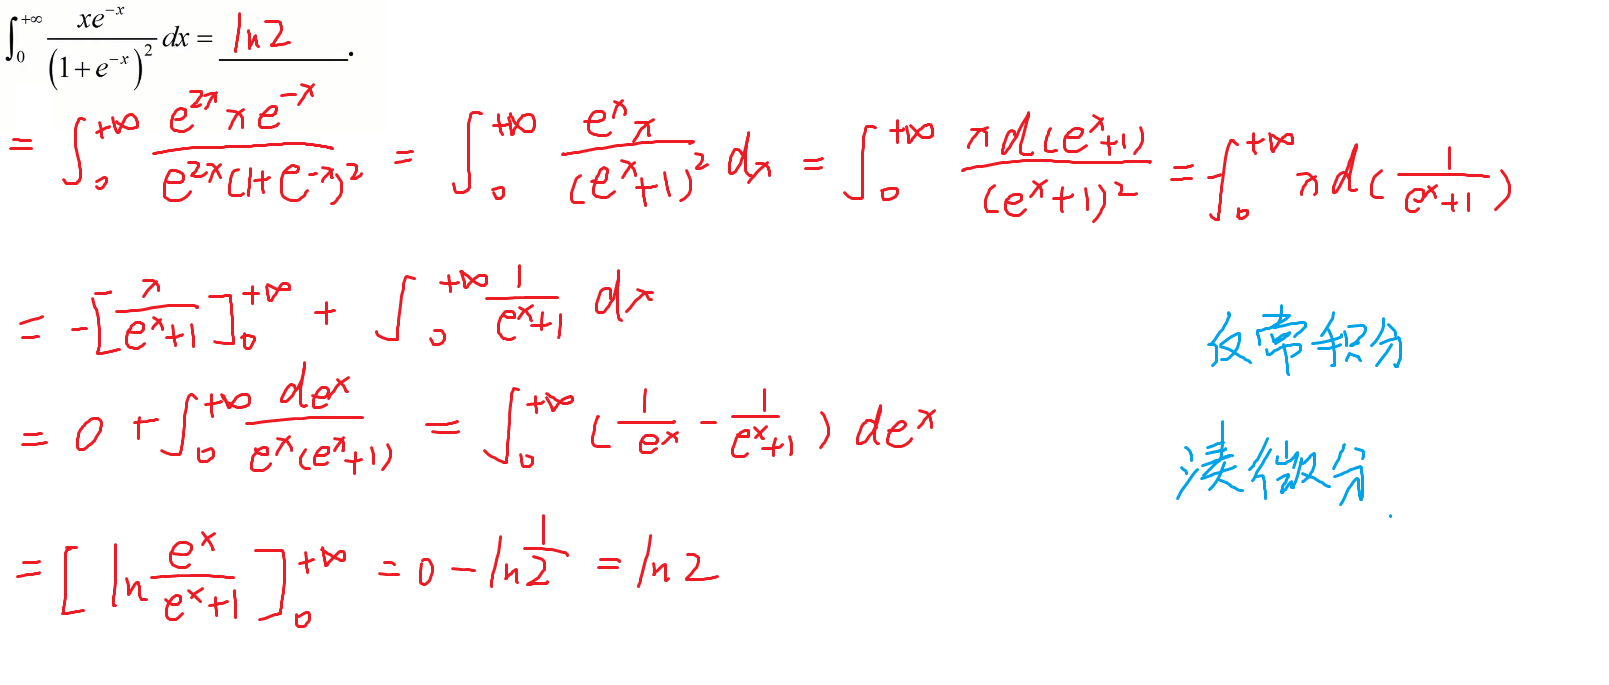 ∫₀^{+∞} xe^{-x}/(1+e^{-x})² dx = ln2.
= ∫₀^{+∞} e^{2x}xe^{-x}/e^{2x}(1+e^{-x})² = ∫₀^{+∞} e^x x/(e^x+1)² dx = ∫₀^{+∞} xd(e^x+1)/(e^x+1)² = -∫₀^{+∞} xd(1/(e^x+1))
= -[x/(e^x+1)]₀^{+∞} + ∫₀^{+∞} 1/(e^x+1) dx
反常积分
= 0 + ∫₀^{+∞} de^x/e^x(e^x+1) = ∫₀^{+∞} (1/e^x - 1/(e^x+1)) de^x
凑微分.
= [ln e^x/(e^x+1)]₀^{+∞} = 0 - ln 1/2 = ln2